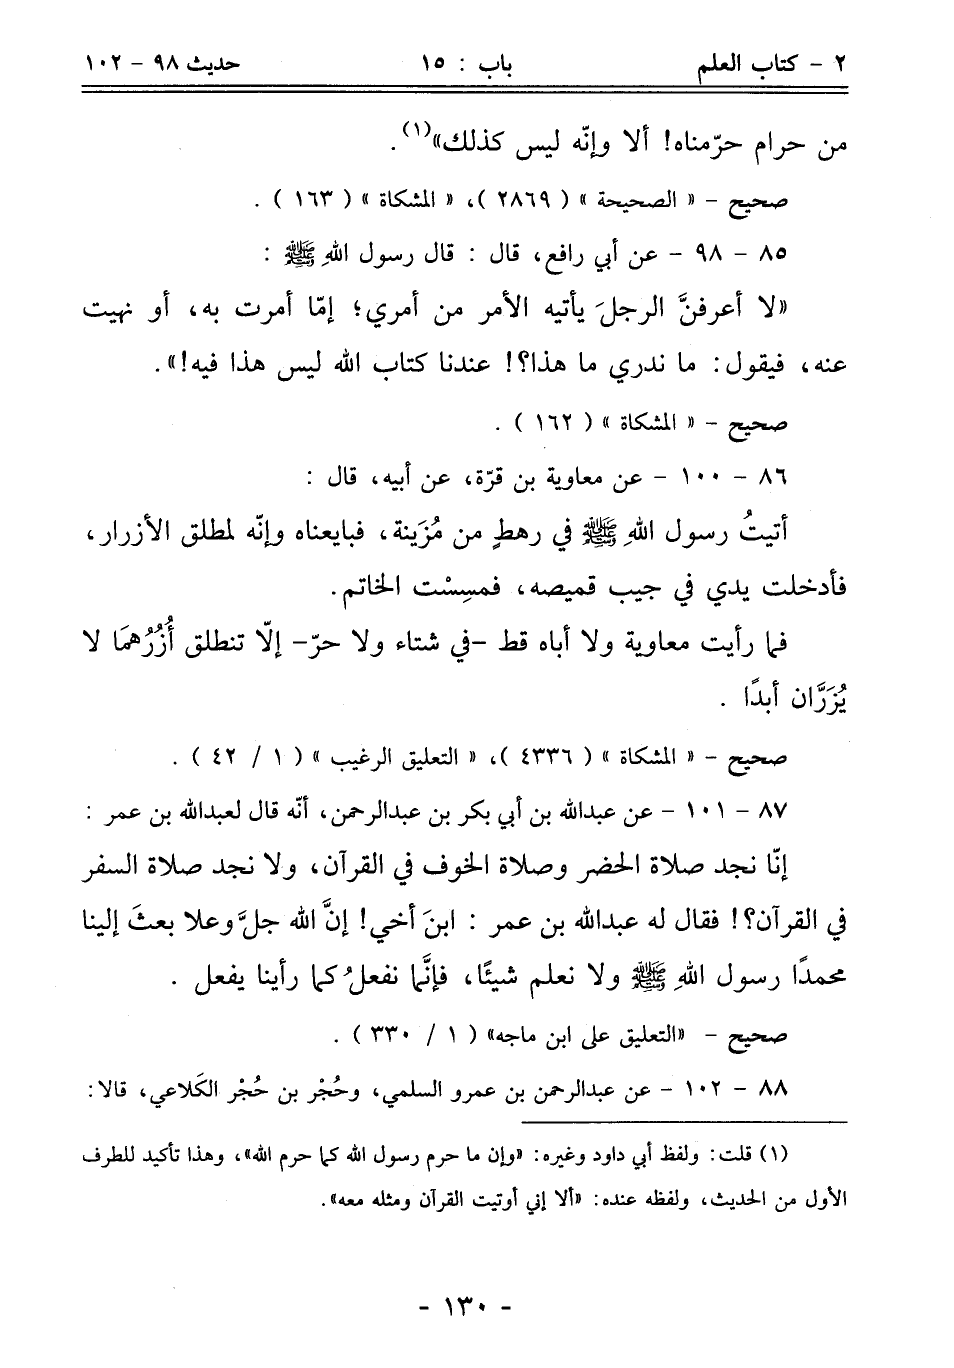 ٢ - كتاب العلم باب : ١٥ حديث ٩٨ - ١٠٢
من حرام حرّمناه! ألا وإنّه ليس كذلك»(١) .
صحيح - « الصحيحة » ( ٢٨٦٩ )، « المشكاة » ( ١٦٣ ) .
٨٥ - ٩٨ - عن أبي رافع، قال : قال رسول اللهِ ﷺ :
«لا أعرفنَّ الرجلَ يأتيه الأمر من أمري؛ إمّا أمرت به، أو نهيت
عنه، فيقول: ما ندري ما هذا؟! عندنا كتاب الله ليس هذا فيه!» .
صحيح - « المشكاة » ( ١٦٢ ) .
٨٦ - ١٠٠ - عن معاوية بن قرّة، عن أبيه، قال :
أتيتُ رسول اللهِ ﷺ في رهطٍ من مُزَينة، فبايعناه وإنّه لمطلق الأزرار،
فأدخلت يدي في جيب قميصه، فمسِسْت الخاتم .
فما رأيت معاوية ولا أباه قط -في شتاء ولا حرّ- إلّا تنطلق أُزُرُهمَا لا
يُزَرَّان أبدًا .
صحيح - « المشكاة » ( ٤٣٣٦ )، « التعليق الرغيب » ( ١ / ٤٢ ) .
٨٧ - ١٠١ - عن عبدالله بن أبي بكر بن عبدالرحمن، أنّه قال لعبدالله بن عمر :
إنّا نجد صلاة الحضر وصلاة الخوف في القرآن، ولا نجد صلاة السفر
في القرآن؟! فقال له عبدالله بن عمر : ابنَ أخي! إنَّ الله جلَّ وعلا بعثَ إلينا
محمدًا رسول اللهِ ﷺ ولا نعلم شيئًا، فإنَّما نفعلُ كما رأينا يفعل .
صحيح - «التعليق على ابن ماجه» ( ١ / ٣٣٠ ) .
٨٨ - ١٠٢ - عن عبدالرحمن بن عمرو السلمي، وحُجْر بن حُجْر الكَلاعي، قالا:
(١) قلت: ولفظ أبي داود وغيره: «وإن ما حرم رسول الله كما حرم الله»، وهذا تأكيد للطرف
الأول من الحديث، ولفظه عنده: «ألا إني أوتيت القرآن ومثله معه».
- ١٣٠ -